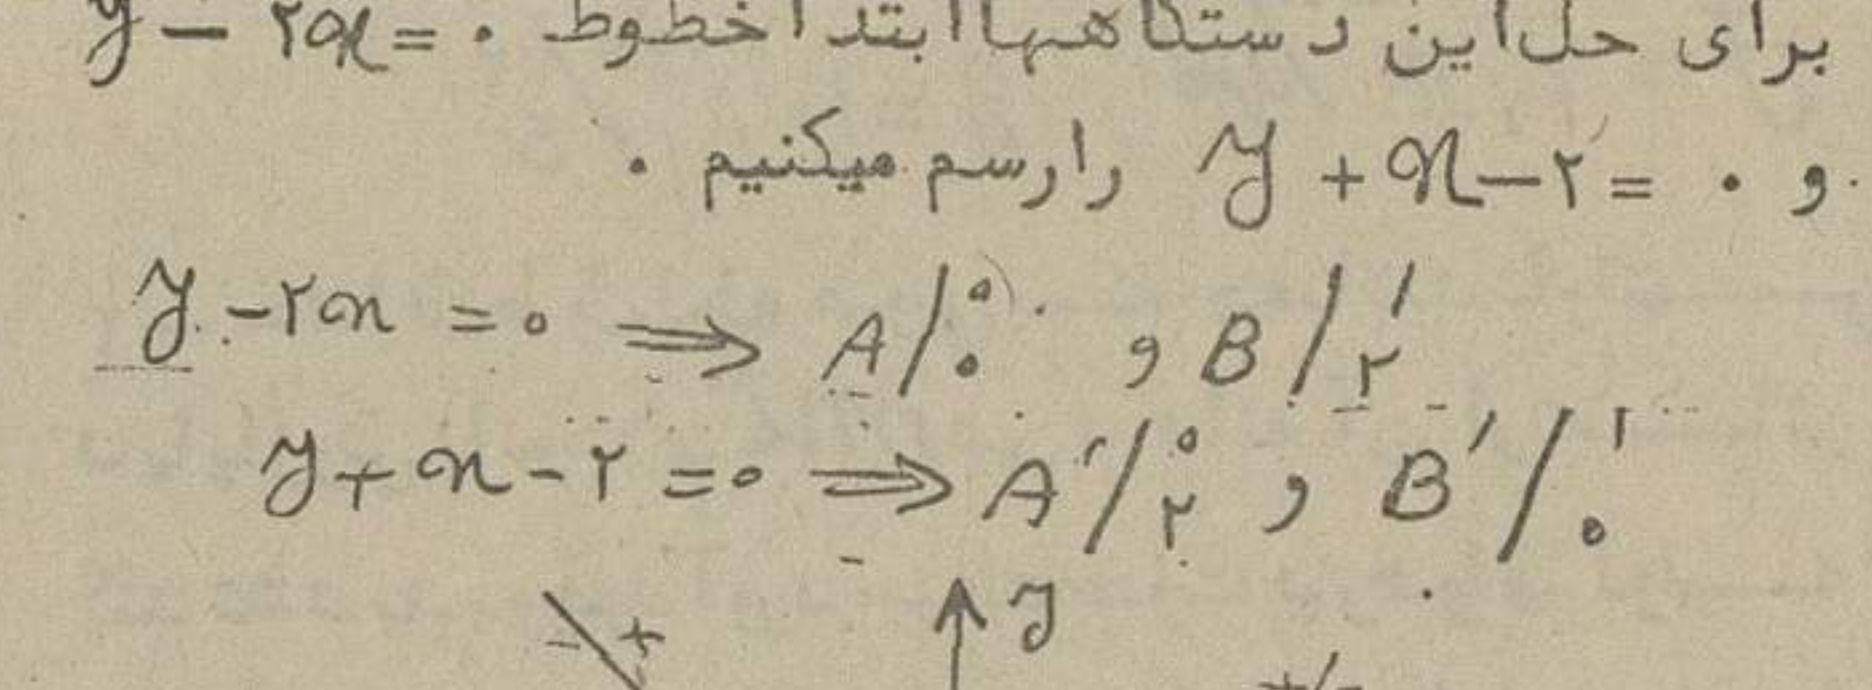 برای حل این دستگاهها ابتدا خطوط y - ۲x = ۰
و y + x - ۲ = ۰ را رسم میکنیم .
y - ۲x = ۰ ⇒ A/۰ ۰ و B/۱ ۲
y + x - ۲ = ۰ ⇒ A'/۰ ۲ و B'/۱ ۰
- + y + -